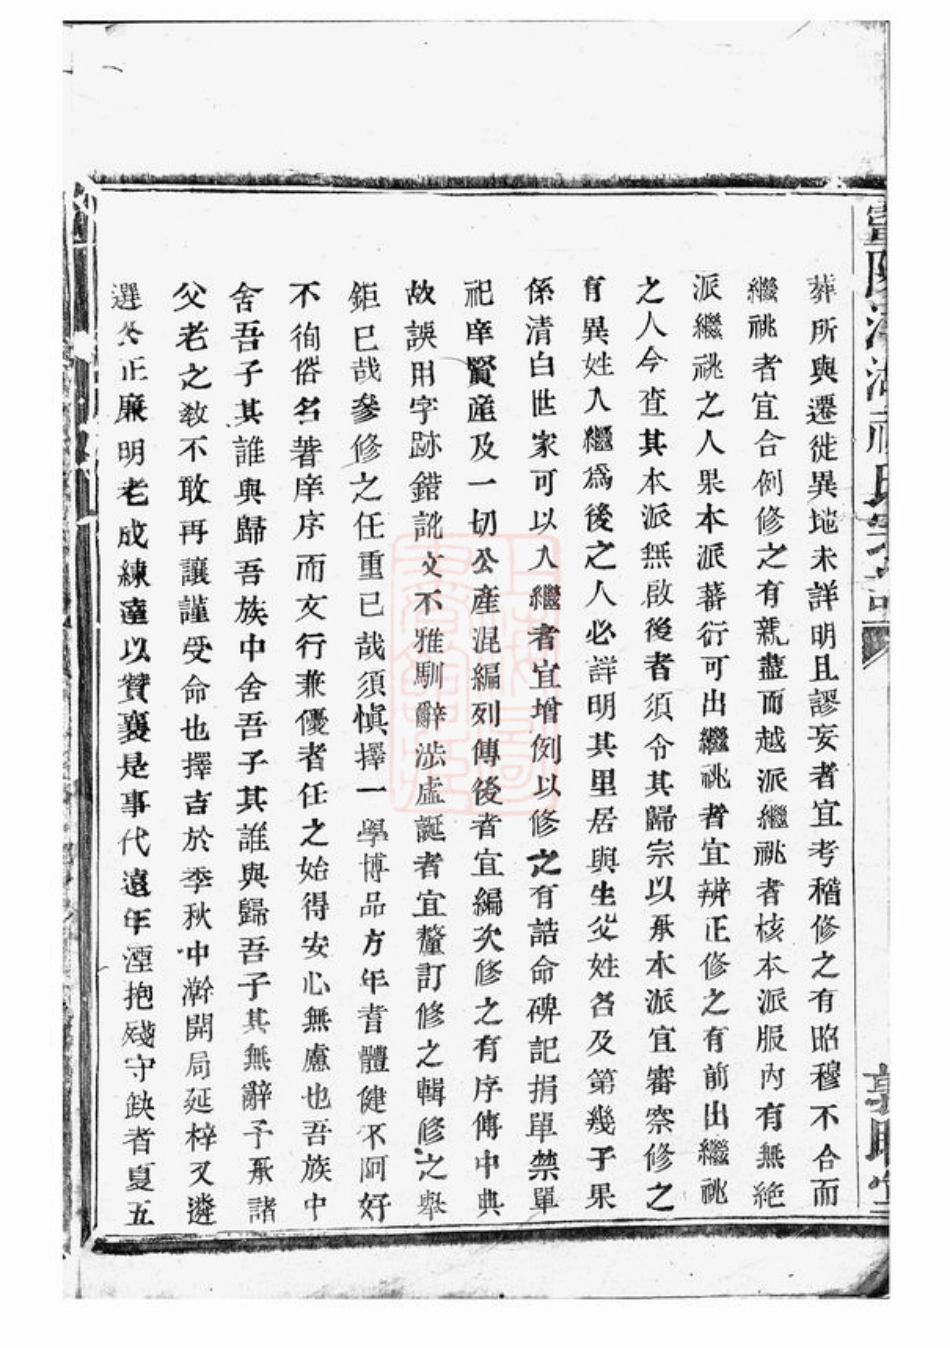 葬所與遷徙異地未詳明且謬妄者宜考稽修之有昭穆不合而
繼祧者宜合例修之有親盡而越派繼祧者核本派服內有無絶
派繼祧之人果本派蕃衍可出繼祧者宜辨正修之有前出繼祧
之人今查其本派無啟後者須令其歸宗以承本派宜審察修之
有異姓入繼為後之人必詳明其里居與生父姓名及第幾子果
係清白世家可以入繼者宜增例以修之有誥命碑記捐單禁單
祀庠賢產及一切公產混編列傳後者宜編次修之有序傳中典
故誤用字跡錯訛文不雅馴辭涉虛誕者宜釐訂修之輯修之舉
鉅已哉參修之任重已哉須慎擇一學博品方年耆體健不阿好
不徇俗名著庠序而文行兼優者任之始得安心無慮也吾族中
舍吾子其誰與歸吾族中舍吾子其誰與歸吾子其無辭予承諸
父老之敎不敢再讓謹受命也擇吉於季秋中澣開局延梓又遴
選公正廉明老成練達以贊襄是事代遠年湮抱殘守缺者夏五